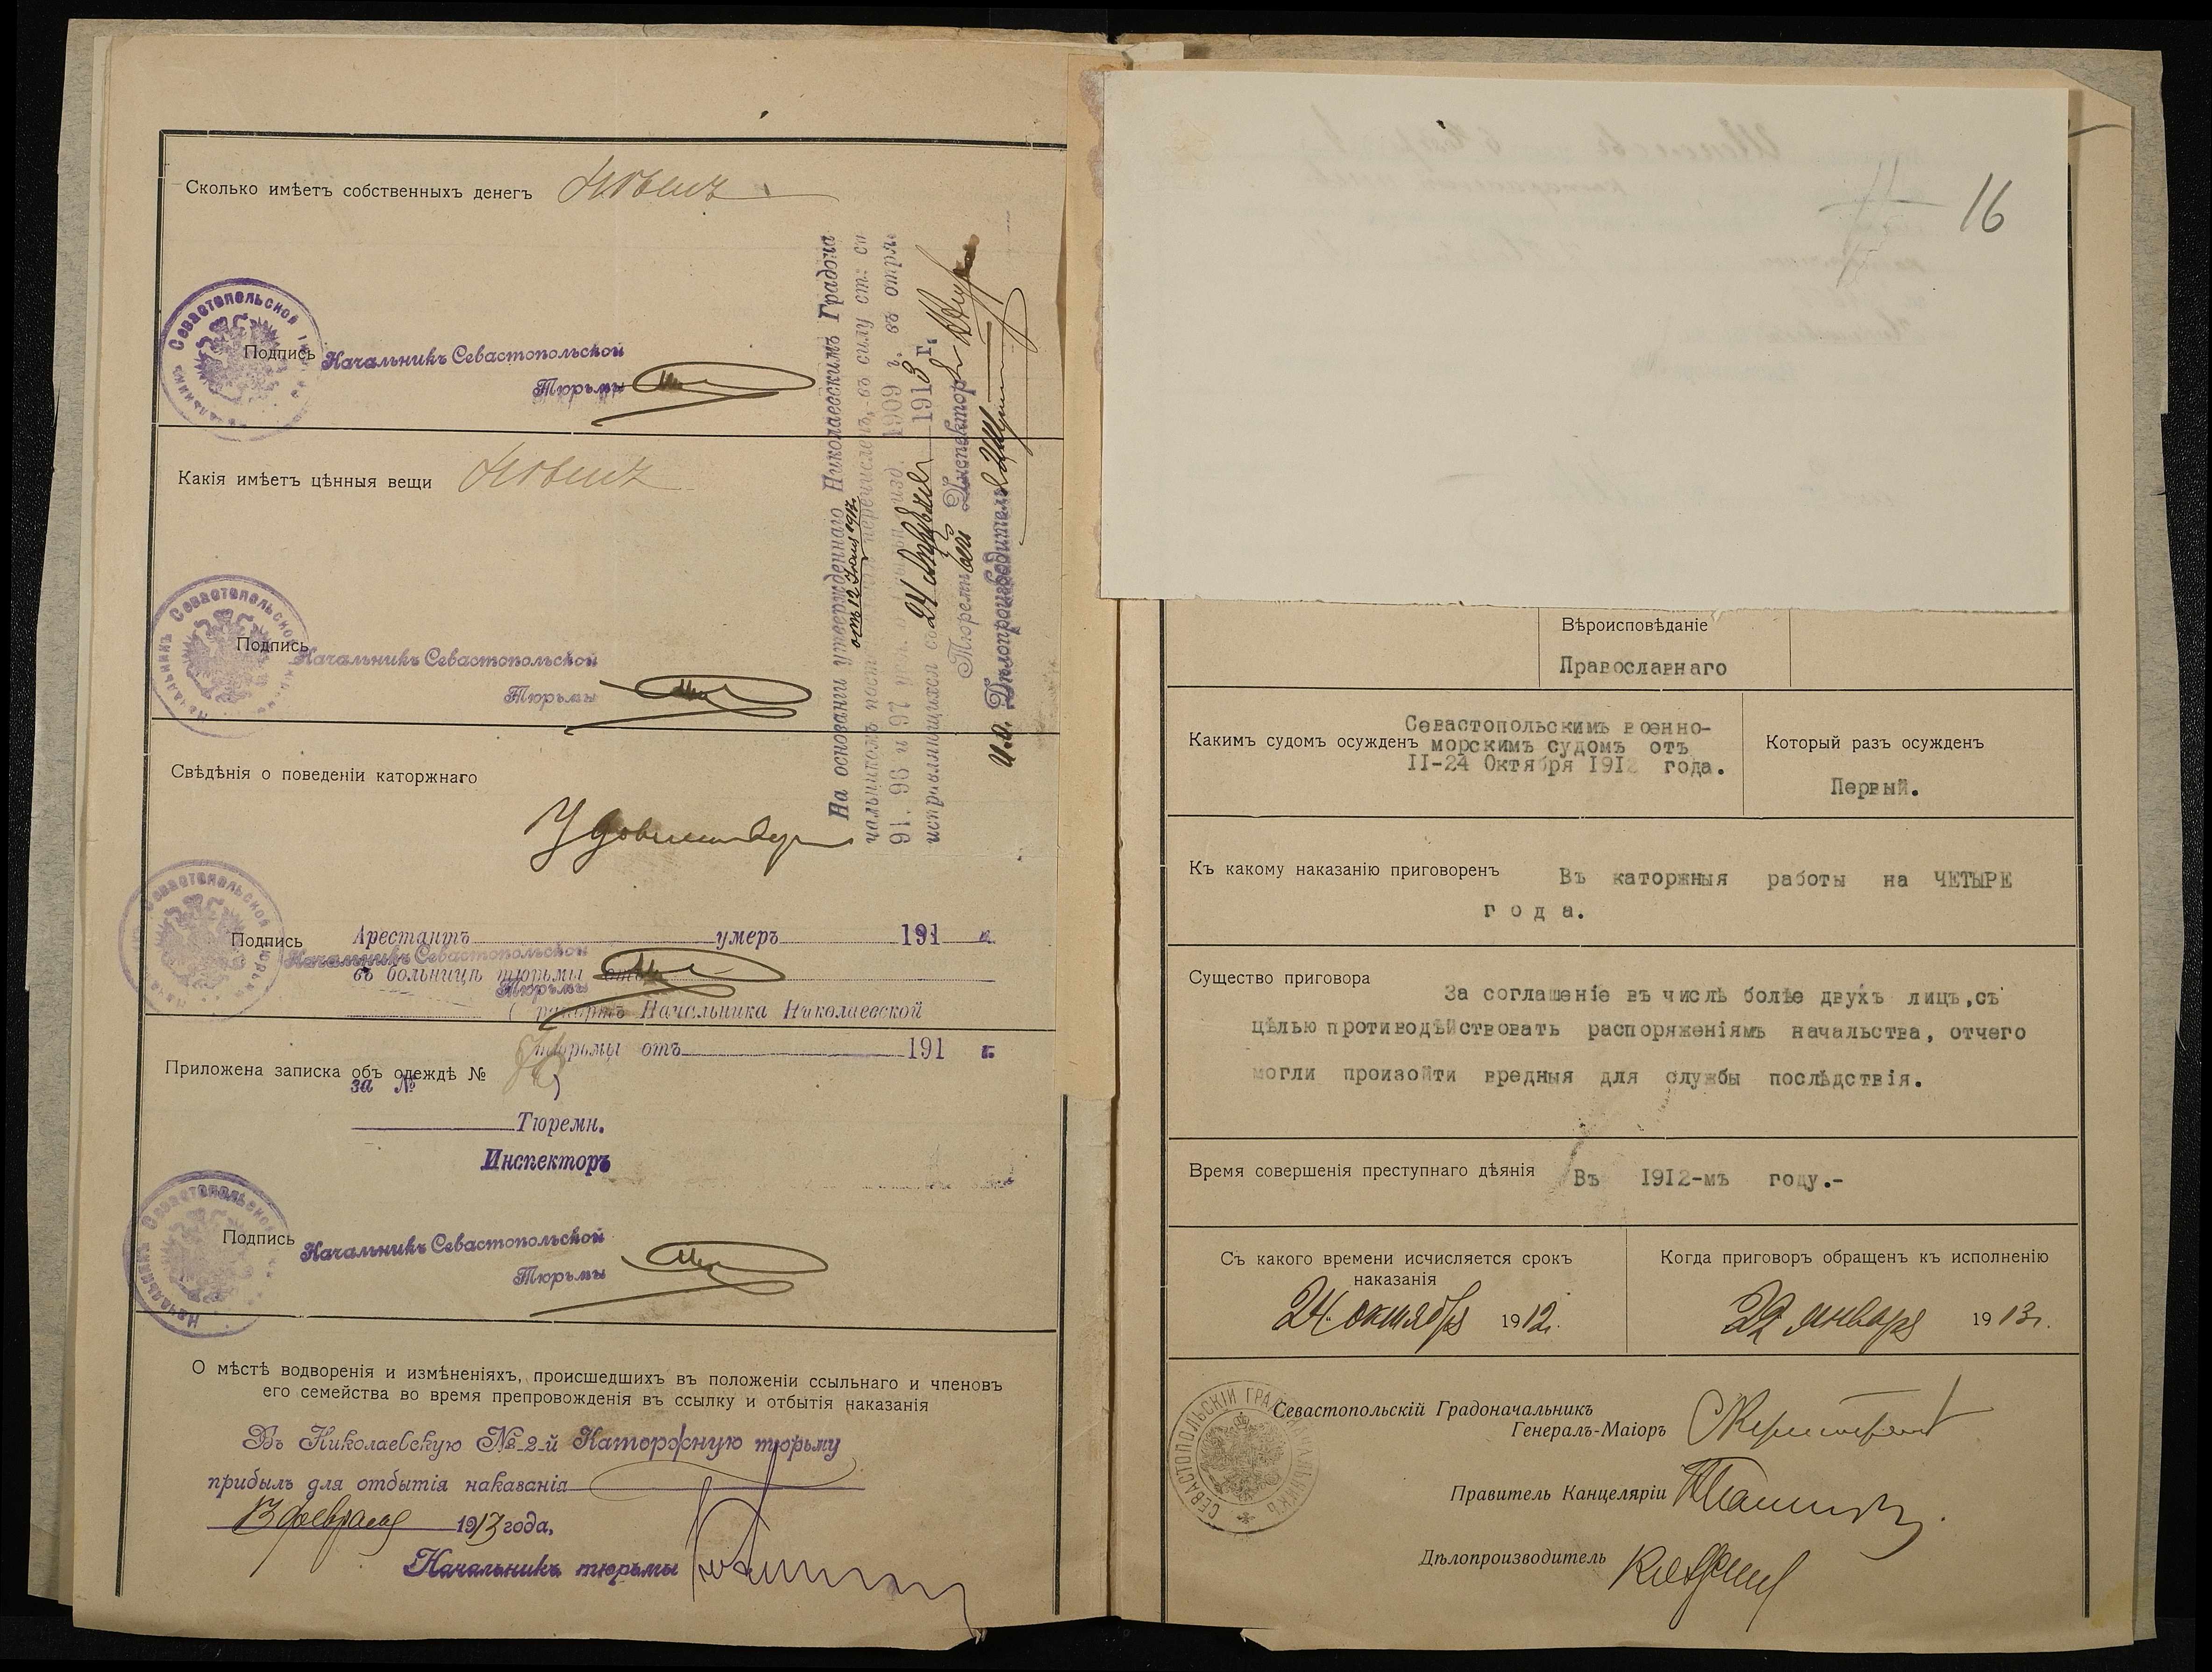 Сколько имѣетъ собственныхъ денегъ
Севастопольской
Подпись Начальникъ Севастопольской
Тюрьмы
Какія имѣетъ цѣнныя вещи
Начальникъ Севастопольской
Подпись Начальникъ Севастопольской
Тюрьмы
Свѣдѣнія о поведеніи каторжнаго
Севастопольской
Арестантъ умеръ 191 г.
Подпись Начальникъ Севастопольской
въ больницѣ тюрьмы
Тюрьмы
рапортъ Начальника Николаевской
тюрьмы отъ 191 г.
Приложена записка объ одеждѣ №
за №
Тюремн.
Инспекторъ
Начальникъ Севастопольской
Подпись Начальникъ Севастопольской
Тюрьмы
О мѣстѣ водворенія и измѣненіяхъ, происшедшихъ въ положеніи ссыльнаго и членовъ
его семейства во время препровожденія въ ссылку и отбытія наказанія
Въ Николаевскую № 2-й Каторжную тюрьму
прибылъ для отбытія наказанія
13 февраля 1913 года,
Начальникъ тюрьмы
На основаніи утвержденнаго Николаевскимъ Градона
отъ 12 1917
чальникомъ перечисленъ, въ силу ст. ст.
91, 96 и 97 изд. 1909 г. въ отряд
исправляющихся съ 24 1913 г.
Тюремный Инспекторъ
И.д. Дѣлопроизводителя
16
Вѣроисповѣданіе
Православнаго
Какимъ судомъ осужденъ
Севастопольскимъ военно-
морскимъ судомъ отъ
II-24 Октября 1912 года.
Который разъ осужденъ
Первый.
Къ какому наказанію приговоренъ Въ каторжныя работы на ЧЕТЫРЕ
года.
Существо приговора
За соглашеніе въ числѣ болѣе двухъ лицъ,съ
цѣлью противодѣйствовать распоряженіямъ начальства, отчего
могли произойти вредныя для службы послѣдствія.
Время совершенія преступнаго дѣянія Въ 19I2-мъ году.-
Съ какого времени исчисляется срокъ
наказанія
24 октября 1912г.
Когда приговоръ обращенъ къ исполненію
22 января 1913г.
СЕВАСТОПОЛЬСКІЙ ГРАДОНАЧАЛЬНИКЪ
Севастопольскій Градоначальникъ
Генералъ-Маіоръ
Правитель Канцеляріи
Дѣлопроизводитель